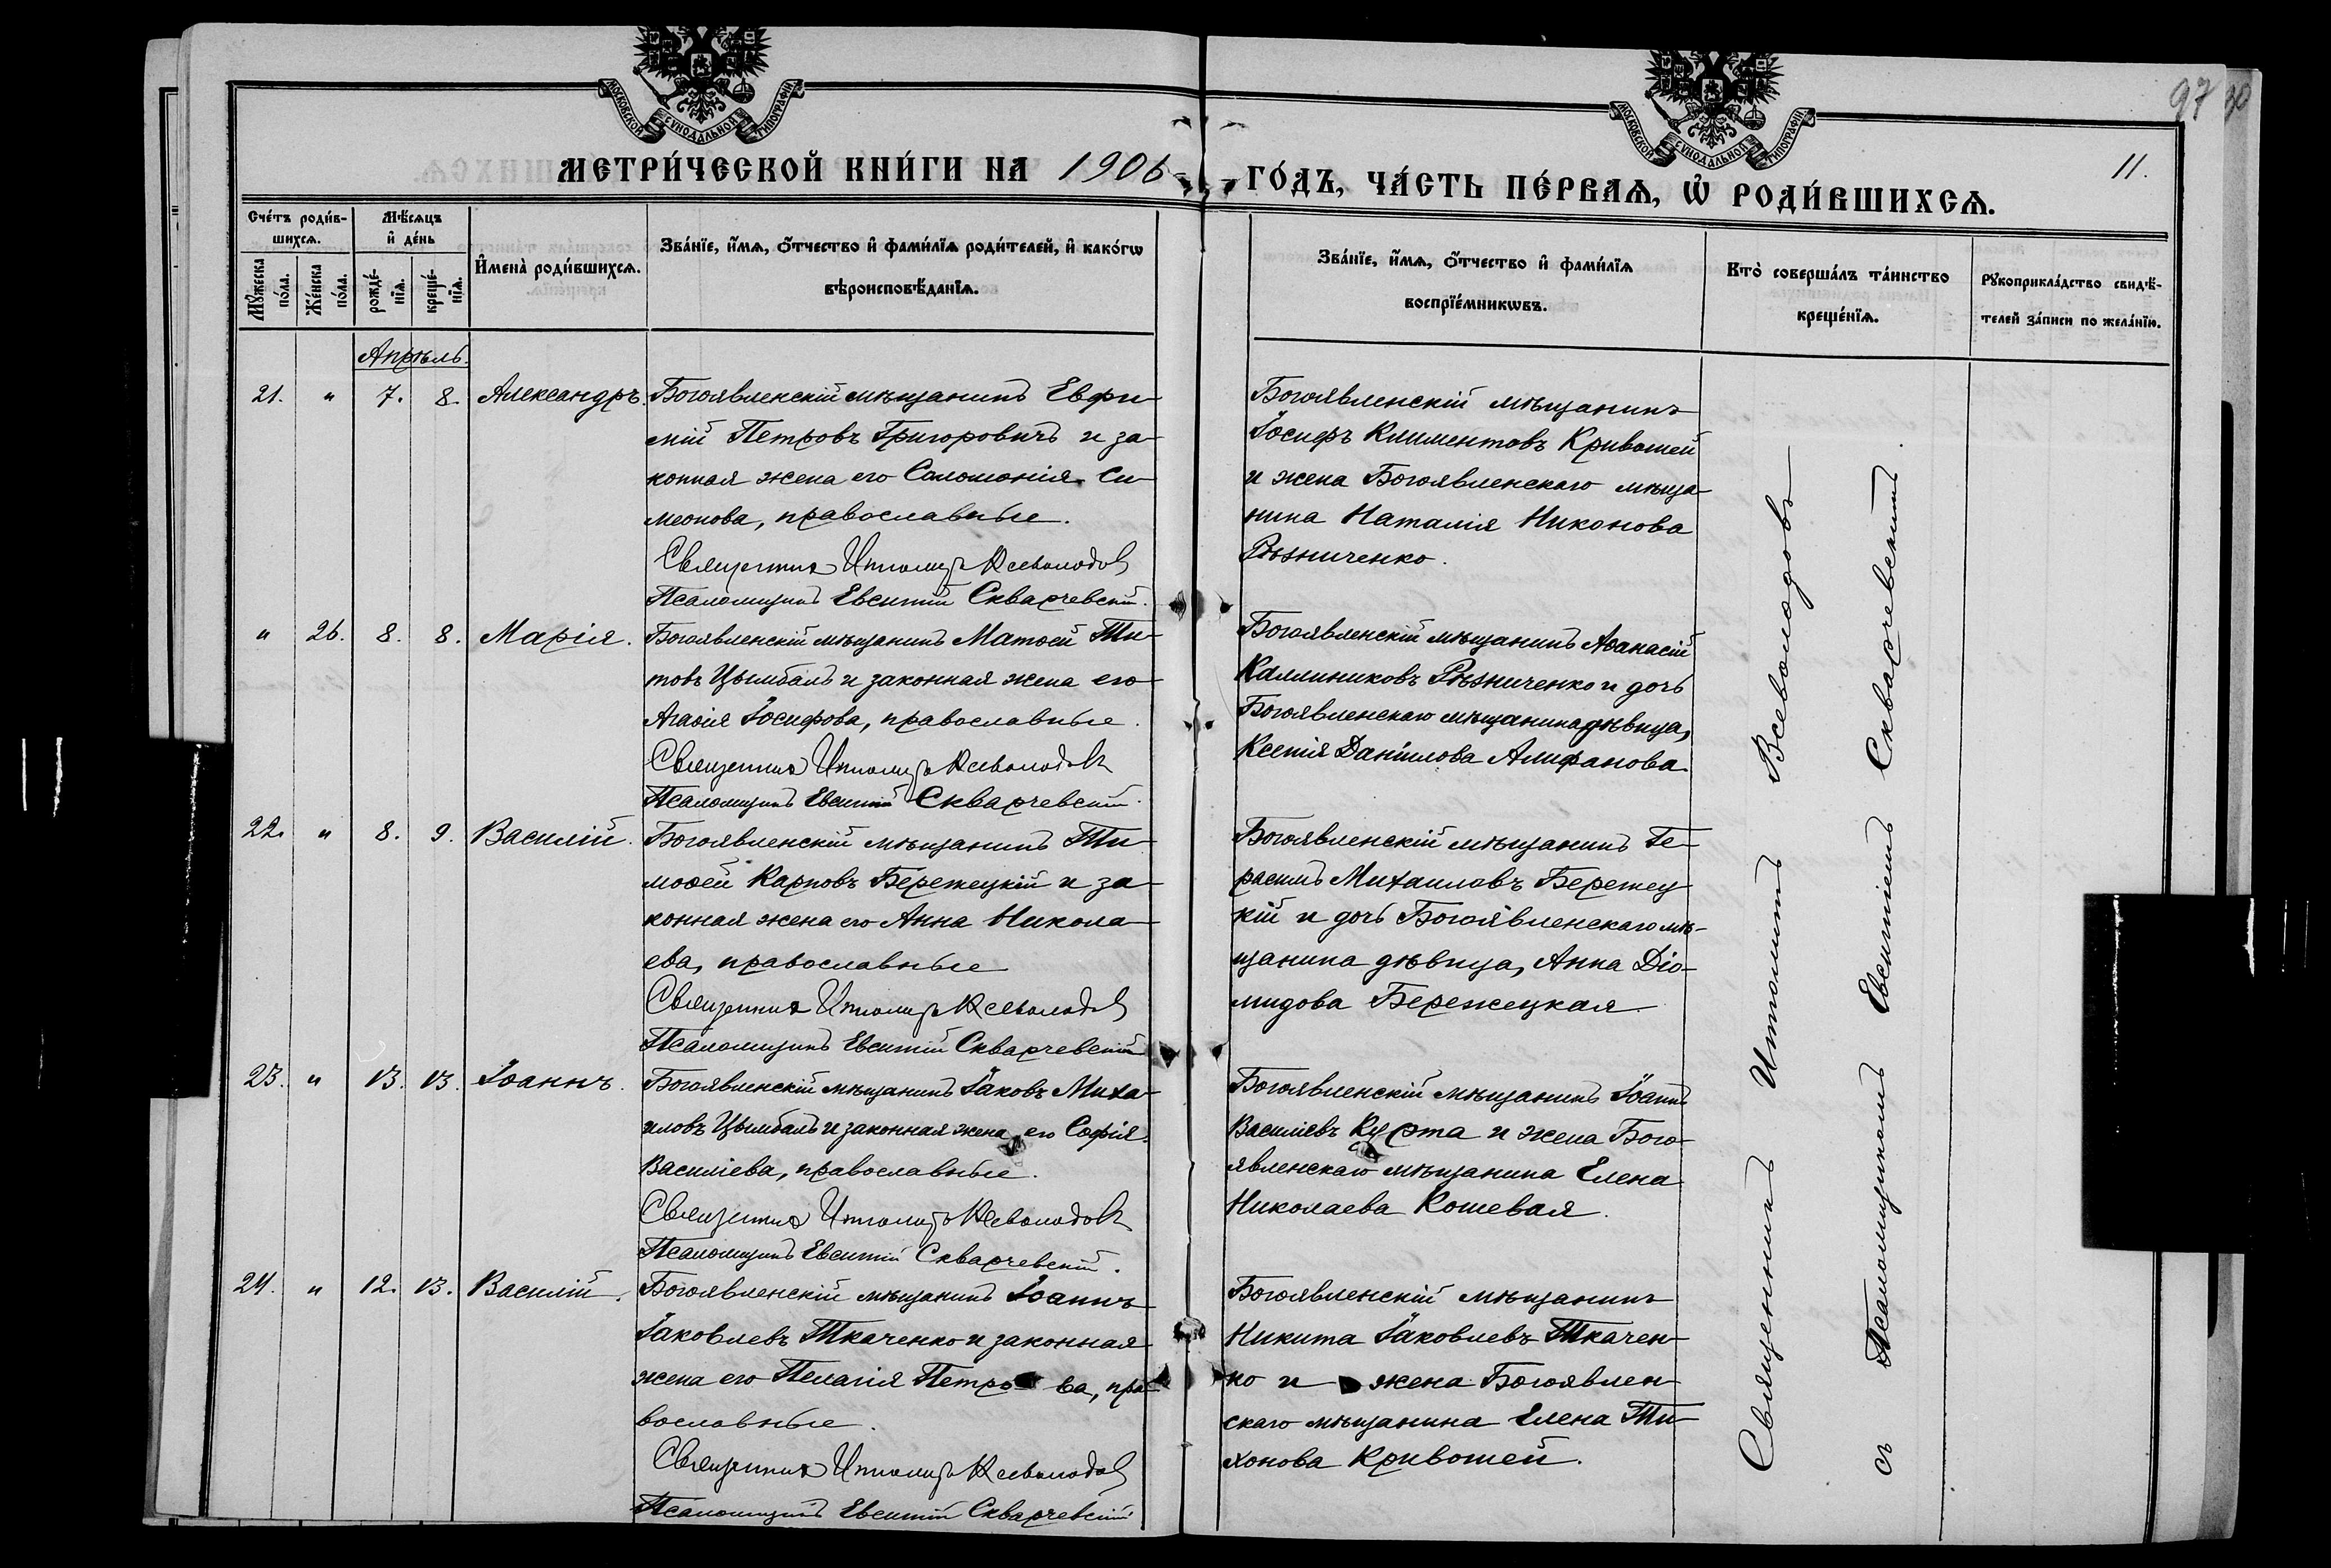 МОСКОВСКОЙ СѴНОДАЛЬНОЙ ТИПОГРАФІИ
МОСКОВСКОЙ СѴНОДАЛЬНОЙ ТИПОГРАФІИ
97
11.
МЕТРИ́ЧЕСКОЙ КНИ́ГИ НА 1906
ГО́ДЪ, ЧА́СТЬ ПЕ́РВАѦ, Ѽ РОДИ́ВШИХСѦ.
Сче́тъ роди́в-
шихсѧ.
Мꙋ́жеска
по́ла.
Же́нска
по́ла.
Мѣ́сѧцъ
и҆ де́нь
рожде́-
нїѧ.
креще́-
нїѧ.
И҆мена̀ роди́вшихсѧ.
Зва́нїе, и҆́мѧ, ѻ҆́тчество и҆ фами́лїѧ роди́телей, и҆ како́гѡ
вѣроисповѣ́данїѧ.
Зва́нїе, и҆́мѧ, ѻ҆́тчество и҆ фами́лїѧ
воспрїе́мникѡвъ.
Кто̀ соверша́лъ та́инство
креще́нїѧ.
Рꙋкоприкла́дство свидѣ́-
телей за́писи по жела́нїю.
Апрѣль.
21. " 7. 8. Александръ.
Богоявленскій мѣщанинъ Евфи-
мій Петровъ Григоровичъ и за-
конная жена его Соломонія Си-
меонова, православные.
Священникъ Ипполитъ Всеволодовъ
Псаломщикъ Евсигній Скварчевскій.
Богоявленскій мѣщанинъ
Іосифъ Климентовъ Кривошей
и жена Богоявленскаго мѣща-
нина Наталія Никонова
Рѣзниченко.
" 26. 8. 8. Марія.
Богоявленскій мѣщанинъ Матѳей Ти-
товъ Цымбалъ и законная жена его
Агаѳія Іосифова, православные.
Священникъ Ипполитъ Всеволодовъ
Псаломщикъ Евсигній Скварчевскій.
Богоявленскій мѣщанинъ Аѳанасій
Каллиниковъ Рѣзниченко и дочь
Богоявленскаго мѣщанина дѣвица,
Ксенія Даніилова Алифанова.
22. " 8. 9. Василій.
Богоявленскій мѣщанинъ Ти-
моѳей Карповъ Бережецкій и за-
конная жена его Анна Никола-
ева, православные
Священникъ Ипполитъ Всеволодовъ
Псаломщикъ Евсигній Скварчевскій
Богоявленскій мѣщанинъ Ге-
расимъ Михаиловъ Бережец-
кій и дочь Богоявленскаго мѣ-
щанина дѣвица, Анна Діо-
мидова Бережецкая.
23. " 13. 13. Іоаннъ.
Богоявленскій мѣщанинъ Іаковъ Миха-
иловъ Цымбалъ и законная жена его Софія
Василіева, православные.
Священникъ Ипполитъ Всеволодовъ
Псаломщикъ Евсигній Скварчевскій.
Богоявленскій мѣщанинъ Іоаннъ
Василіевъ Курта и жена Бого-
явленскаго мѣщанина Елена
Николаева Кошевая.
24. " 12. 13. Василій.
Богоявленскій мѣщанинъ Іоаннъ
Іаковлевъ Ткаченко и законная
жена его Пелагія Петрова, пра-
вославные.
Священникъ Ипполитъ Всеволодовъ
Псаломщикъ Евсигній Скварчевскій
Богоявленскій мѣщанинъ
Никита Іаковлевъ Ткачен-
ко и жена Богоявлен-
скаго мѣщанина Елена Ти-
хонова Кривошей.
Священникъ Ипполитъ Всеволодовъ
съ Псаломщикомъ Евсигніемъ Скварчевскимъ.